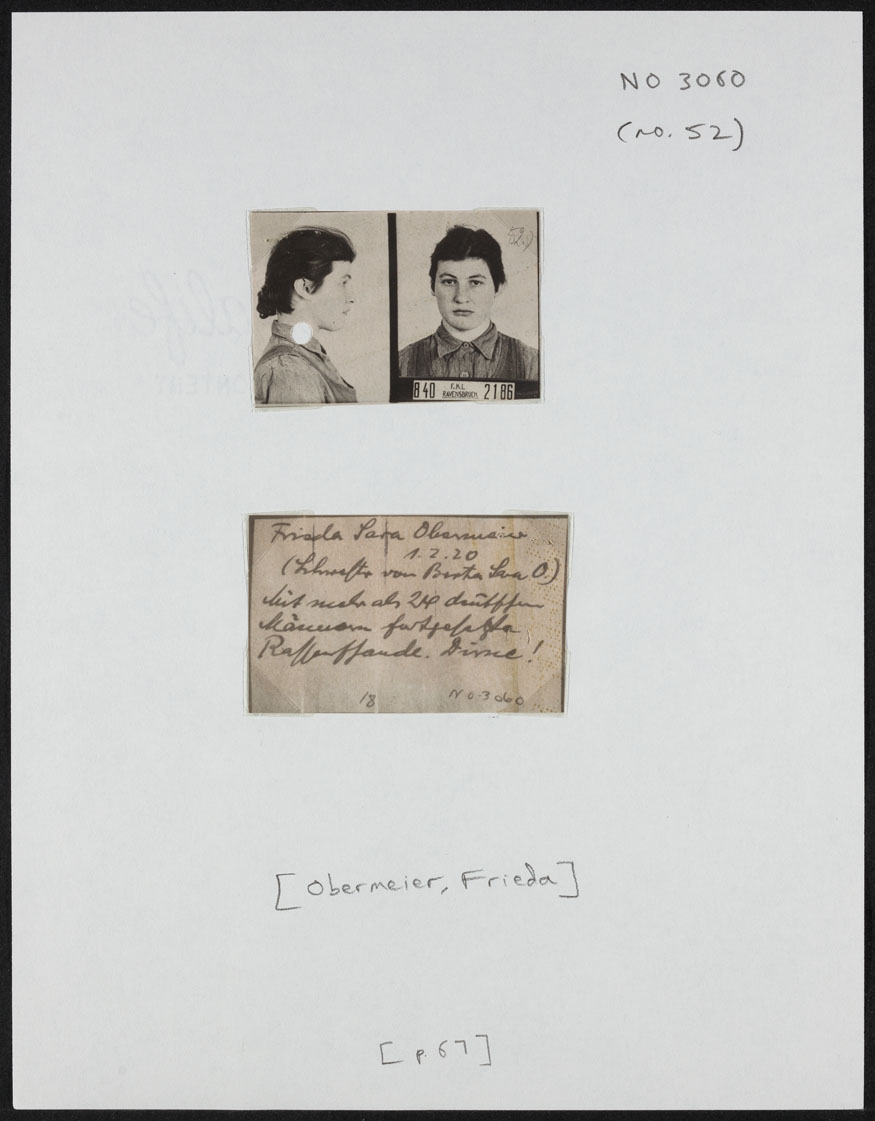 NO 3060
(no. 52)
52.)
840 F.K.L. RAVENSBRÜCK 2186
Frieda Sara Obermeier
1.2.20
(Schwester von Berta Sara O.)
Mit mehr als 24 deutschen
Männern fortgesetzte
Rassenschande. Dirne!
18
NO-3060
[Obermeier, Frieda]
[p. 67]